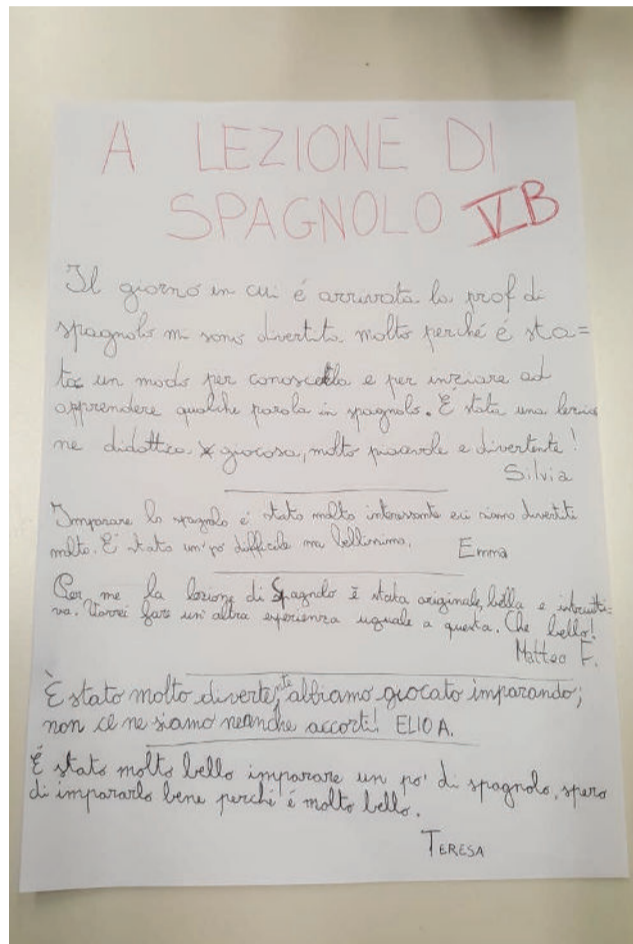 A LEZIONE DI
SPAGNOLO VB
Il giorno in cui é arrivata la prof di
spagnolo mi sono divertita molto perché é sta=
ta un modo per conoscerla e per iniziare ad
apprendere qualche parola in spagnolo. É stata una lezio
ne didattica giocosa, molto piacevole e divertente!
Silvia
Imparare lo spagnolo é stato molto interessante e ci siamo divertiti
molto. É stato un'po' difficile ma bellissimo. Emma
Per me la lezione di Spagnolo è stata originale, bella e istrutti=
va. Vorrei fare un'altra esperienza uguale a questa. Che bello!
Matteo F.
È stato molto divertente, abbiamo giocato imparando;
non ce ne siamo neanche accorti! ELIO A.
É stato molto bello imparare un po' di spagnolo, spero
di impararlo bene perché é molto bello.
TERESA